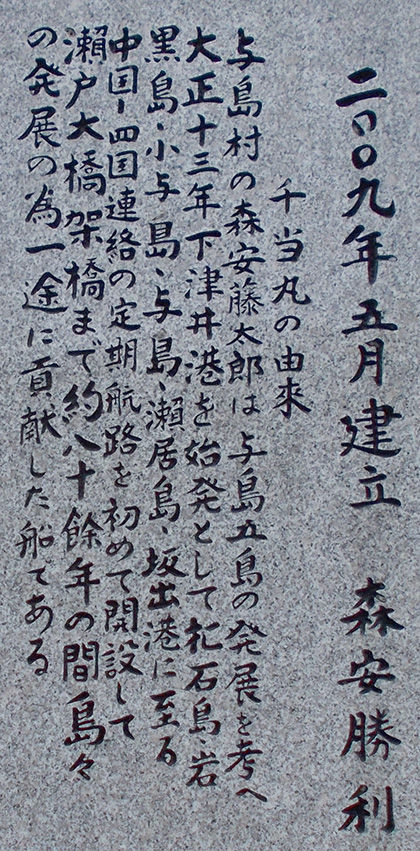 二〇〇九年五月建立 森安勝利
千当丸の由來
与島村の森安藤太郎は 与島五島の発展を考へ
大正十三年下津井港を始発として杔石島、岩
黒島、小与島、与島、瀬居島、坂出港に至る
中国ー四国連絡の定期航路を初めて開設して
瀬戸大橋架橋まで約八十餘年の間島々
の発展の為一途に貢献した船である